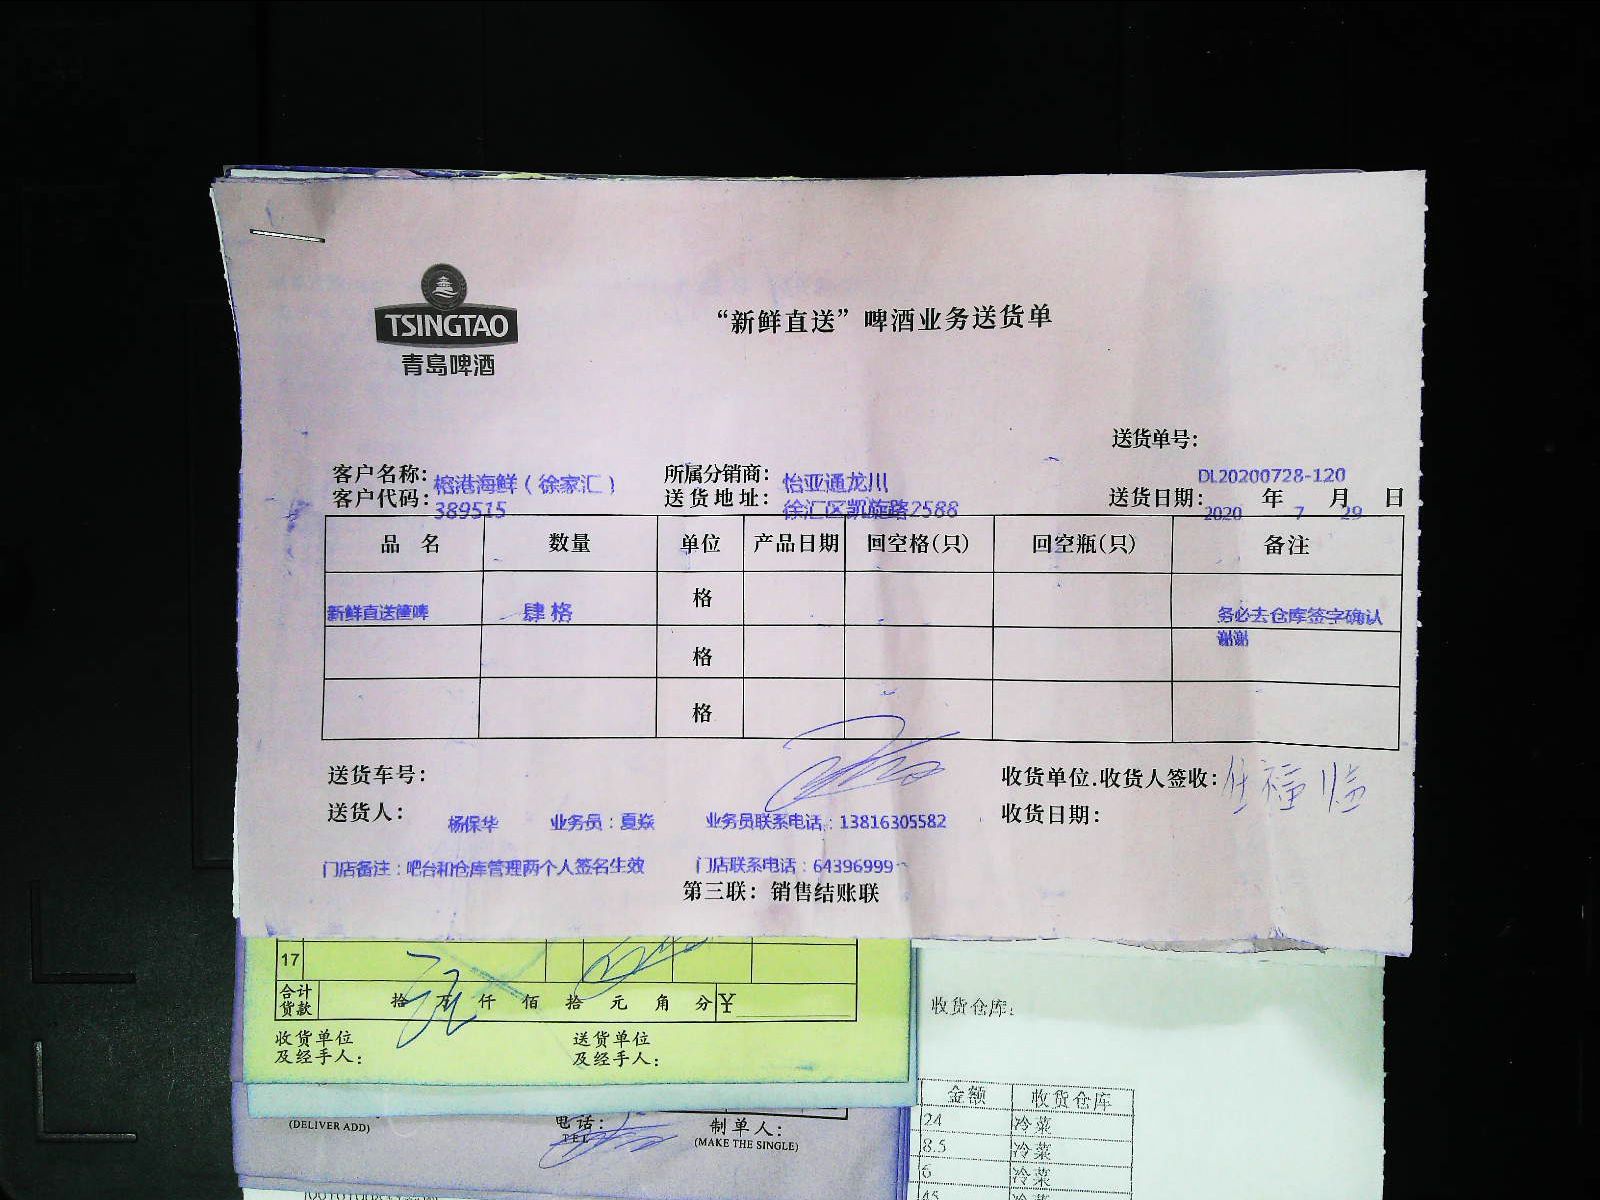 TSINGTAO
青岛啤酒
“新鲜直送”啤酒业务送货单
送货单号：
DL20200728-120
客户名称：榕港海鲜（徐家汇） 所属分销商：怡亚通龙川
客户代码：389515 送货地址：徐汇区凯旋路2588 送货日期：2020 年 7 月 29 日
品 名 数量 单位 产品日期 回空格(只) 回空瓶(只) 备注
新鲜直送箽啤 肆格 格 务必去仓库签字确认
谢谢
格
格
送货车号： 收货单位.收货人签收：任福临
送货人： 杨保华 业务员：夏焱 业务员联系电话：13816305582 收货日期：
门店备注：吧台和仓库管理两个人签名生效 门店联系电话：64396999
第三联：销售结账联
17
合计货款 拾 万 仟 佰 拾 元 角 分 ¥
收货单位 送货单位
及经手人： 及经手人：
收货仓库：
金额 收货仓库
24 冷菜
8.5 冷菜
6 冷菜
45 冷菜
电话： 制单人：
(DELIVER ADD) TEL (MAKE THE SINGLE)